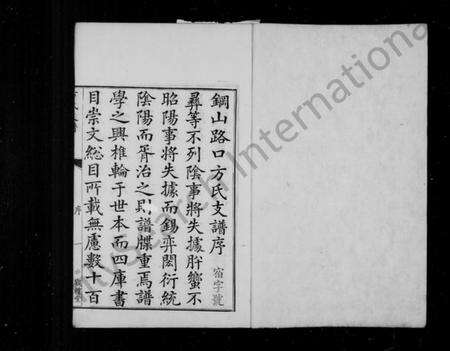 鋼山路口方氏支譜序
宿字號
彝等不列陰事將失據肸蠁不
昭陽事將失據而錫弈閎衍統
陰陽而胥治之則譜牒重焉譜
學之興椎輪于世本而四庫書
目崇文總目所載無慮數十百
序
一
International